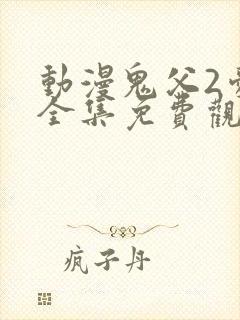 動漫鬼父2
全集免費觀
疯子丹